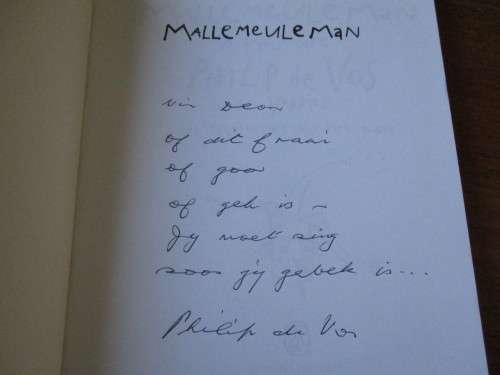 MALLEMEULEMAN
vir Deon
of dit fraai
of goor
of gek is –
Jy moet sing
soos jy gebek is...
Philip de Vos